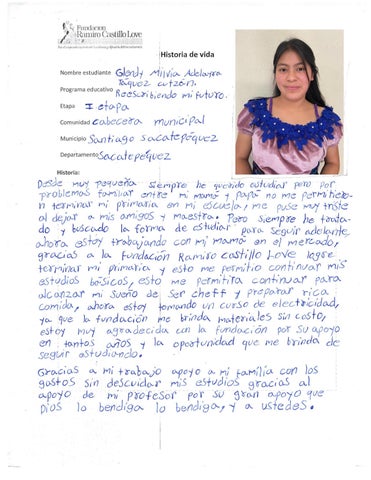 Fundación
Ramiro Castillo Love
Historia de vida
Nombre estudiante Glendy Milvia Adelayra
Páquez cutzán.
Programa educativo Reescribiendo mi futuro.
Etapa I etapa
Comunidad cabecera municipal
Municipio Santiago sacatepéquez
Departamento Sacatepéquez
Historia:
Desde muy pequeña siempre he querido estudiar pero por
problemas familiar entre mi mamá y papá no me permitieron
terminar mi primaria en mi escuela, me puse muy triste
al dejar a mis amigos y maestra. Pero siempre he tratado
y buscado la forma de estudiar para seguir adelante,
ahora estoy trabajando con mi mamá en el mercado,
gracias a la fundación Ramiro castillo Love logre
terminar mi primaria y esto me permitio continuar mis
estudios básicos, esto me permitira continuar para
alcanzar mi sueño de ser cheff y preparar rica
comida, ahora estoy tomando un curso de electricidad,
ya que la fundación me brinda materiales sin costo,
estoy muy agradecida con la fundación por su apoyo
en tantos años y la oportunidad que me brinda de
seguir estudiando.
Gracias a mi trabajo apoyo a mi familia con los
gastos sin descuidar mis estudios gracias al
apoyo de mi profesor por su gran apoyo que
Dios lo bendiga lo bendiga, y a ustedes.